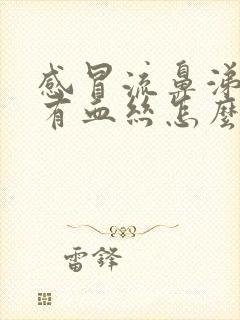 感冒流鼻涕
有血丝怎麼
雷鋒